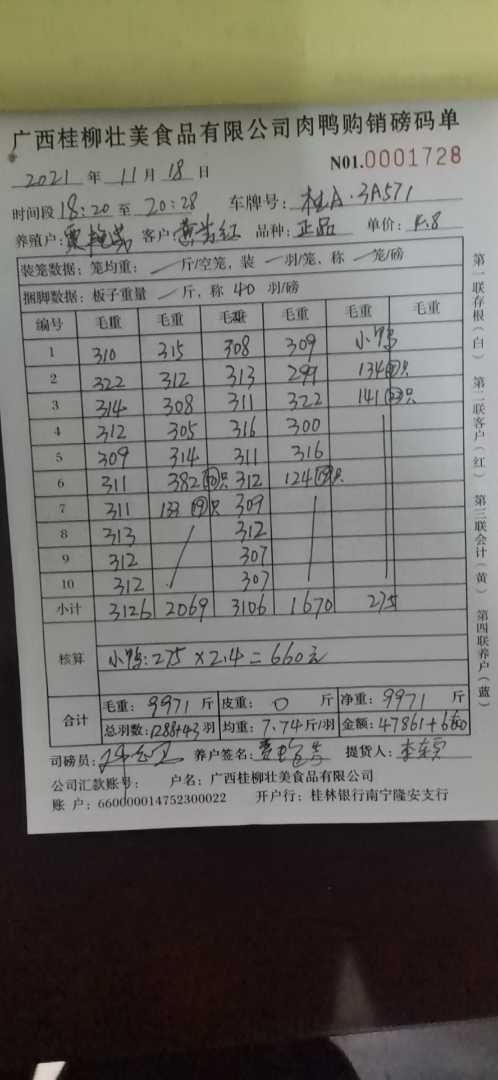 广西桂柳壮美食品有限公司肉鸭购销磅码单
NO1.0001728
2021 年 11 月 18 日
时间段 18:20 至 20:28 车牌号: 桂A·3A571
养殖户: 客户: 黄岩红 品种: 正品 单价: 4.8
装笼数据: 笼均重: 斤/空笼, 装 羽/笼、称 笼/磅
捆脚数据: 板子重量 斤, 称 40 羽/磅
编号 毛重 毛重 毛重 毛重 毛重 毛重
1 310 315 308 309 小鸭
2 322 312 313 299 134 只
3 314 308 311 322 141 只
4 312 305 316 300
5 309 314 311 316
6 311 382 只 312 124 只
7 311 133 19只 309
8 313 / 312
9 312 307
10 312 307
小计 3126 2069 3106 1670 275
核算 小鸭: 275 × 2.4 = 660元
合计 毛重: 9971 斤 皮重: 0 斤 净重: 9971 斤
总羽数: 1288+43 羽 均重: 7.74 斤/羽 金额: 47861+660
司磅员: 养户签名: 提货人:
公司汇款账号: 户名: 广西桂柳壮美食品有限公司
账 户: 660000014752300022 开户行: 桂林银行南宁隆安支行
第一联存根(白) 第二联客户(红) 第三联会计(黄) 第四联养户(蓝)